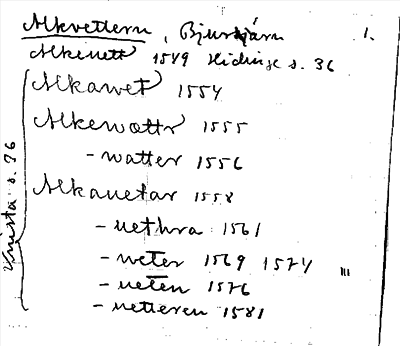 Alkvettern, Bjurtjärn 1.
Alkenett 1549 Hidinge s. 36
Alkawet 1554
Alkewattr 1555
- watter 1556
Alkauetar 1558
- uethra 1561
- weter 1569 1574
- ueten 1576
- uetteren 1581
Knista s. 76